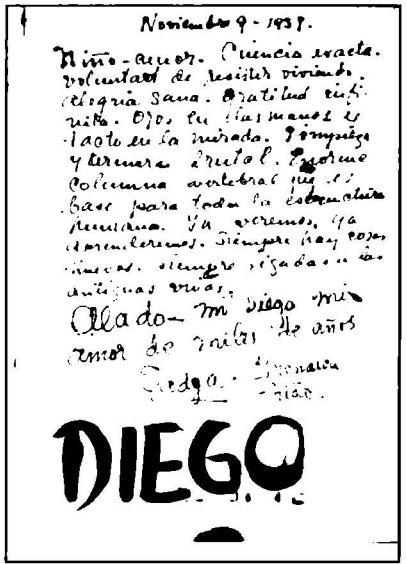 Noviembre 9 - 1939.
Niño-amor. Ciencia exacta.
voluntad de resistir viviendo.
alegria sana. Gratitud infi-
nita. Ojos en las manos y
tacto en la mirada. Limpieza
y ternura frutal. Enorme
columna vertebral que es
base para toda la estructura
humana. Ya veremos, ya
aprenderemos. Siempre hay cosas
nuevas. siempre ligadas a las
antiguas vivas.
Alado - mi Diego mi
amor de miles de años
Sadga. Yrenaica
Frido.
DIEGO